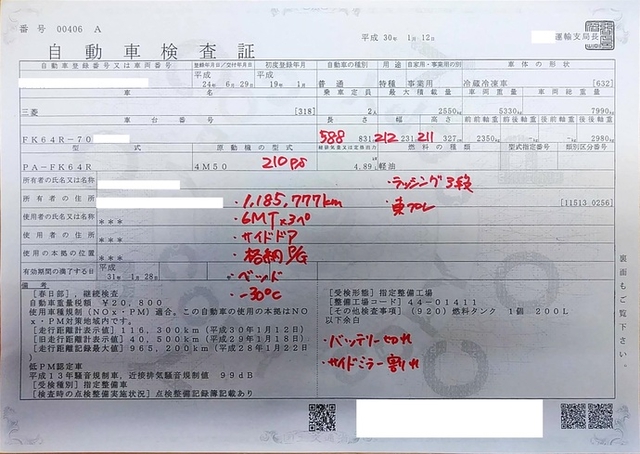 番号 00406 A
平成 30年 1月 12日
運輸支局長
自動車検査証
自動車登録番号又は車両番号 登録年月日/交付年月日 初度登録年月 自動車の種別 用途 自家用・事業用の別 車体の形状
平成 24年 6月 29日 平成 19年 1月 普通 特種 事業用 冷蔵冷凍車 [632]
車名 乗車定員 最大積載量 車両重量 車両総重量
三菱 [318] 2人 2550kg 5330kg 7990kg
車台番号 長さ 幅 高さ 前前軸重 前後軸重 後前軸重 後後軸重
FK64R-70 588 831 212 231 211 327cm 2350kg -kg -kg 2980kg
型式 原動機の型式 総排気量又は定格出力 燃料の種類 型式指定番号 類別区分番号
PA-FK64R 4M50 210ps 4.89L 軽油
所有者の氏名又は名称
・ラッシング3段
所有者の住所 [11513 0256]
・1,185,777km
・東プレ
使用者の氏名又は名称 ***
・6MT×3ペ
使用者の住所 ***
・サイドドア
使用の本拠の位置 ***
・格納PG
有効期間の満了する日 平成 31年 1月 28日
・ベッド
備考
・-30℃
[春日部], 継続検査
自動車重量税額 ¥20,800
使用車種規制(NOx・PM)適合。この自動車の使用の本拠はNO
x・PM対策地域内です。
[走行距離計表示値] 116,300km (平成30年1月12日)
[旧走行距離計表示値] 40,500km (平成29年1月18日)
[走行距離計記録最大値] 965,200km (平成28年1月22日)
低PM認定車
平成13年騒音規制車, 近接排気騒音規制値 99dB
[受検種別] 指定整備車
[検査時の点検整備実施状況] 点検整備記録簿記載あり
[受検形態] 指定整備工場
[整備工場コード] 44-01411
[その他検査事項] (920) 燃料タンク 1個 200L
以下余白
・バッテリー切れ
・サイドミラー割れ
裏面もご覧下さい。